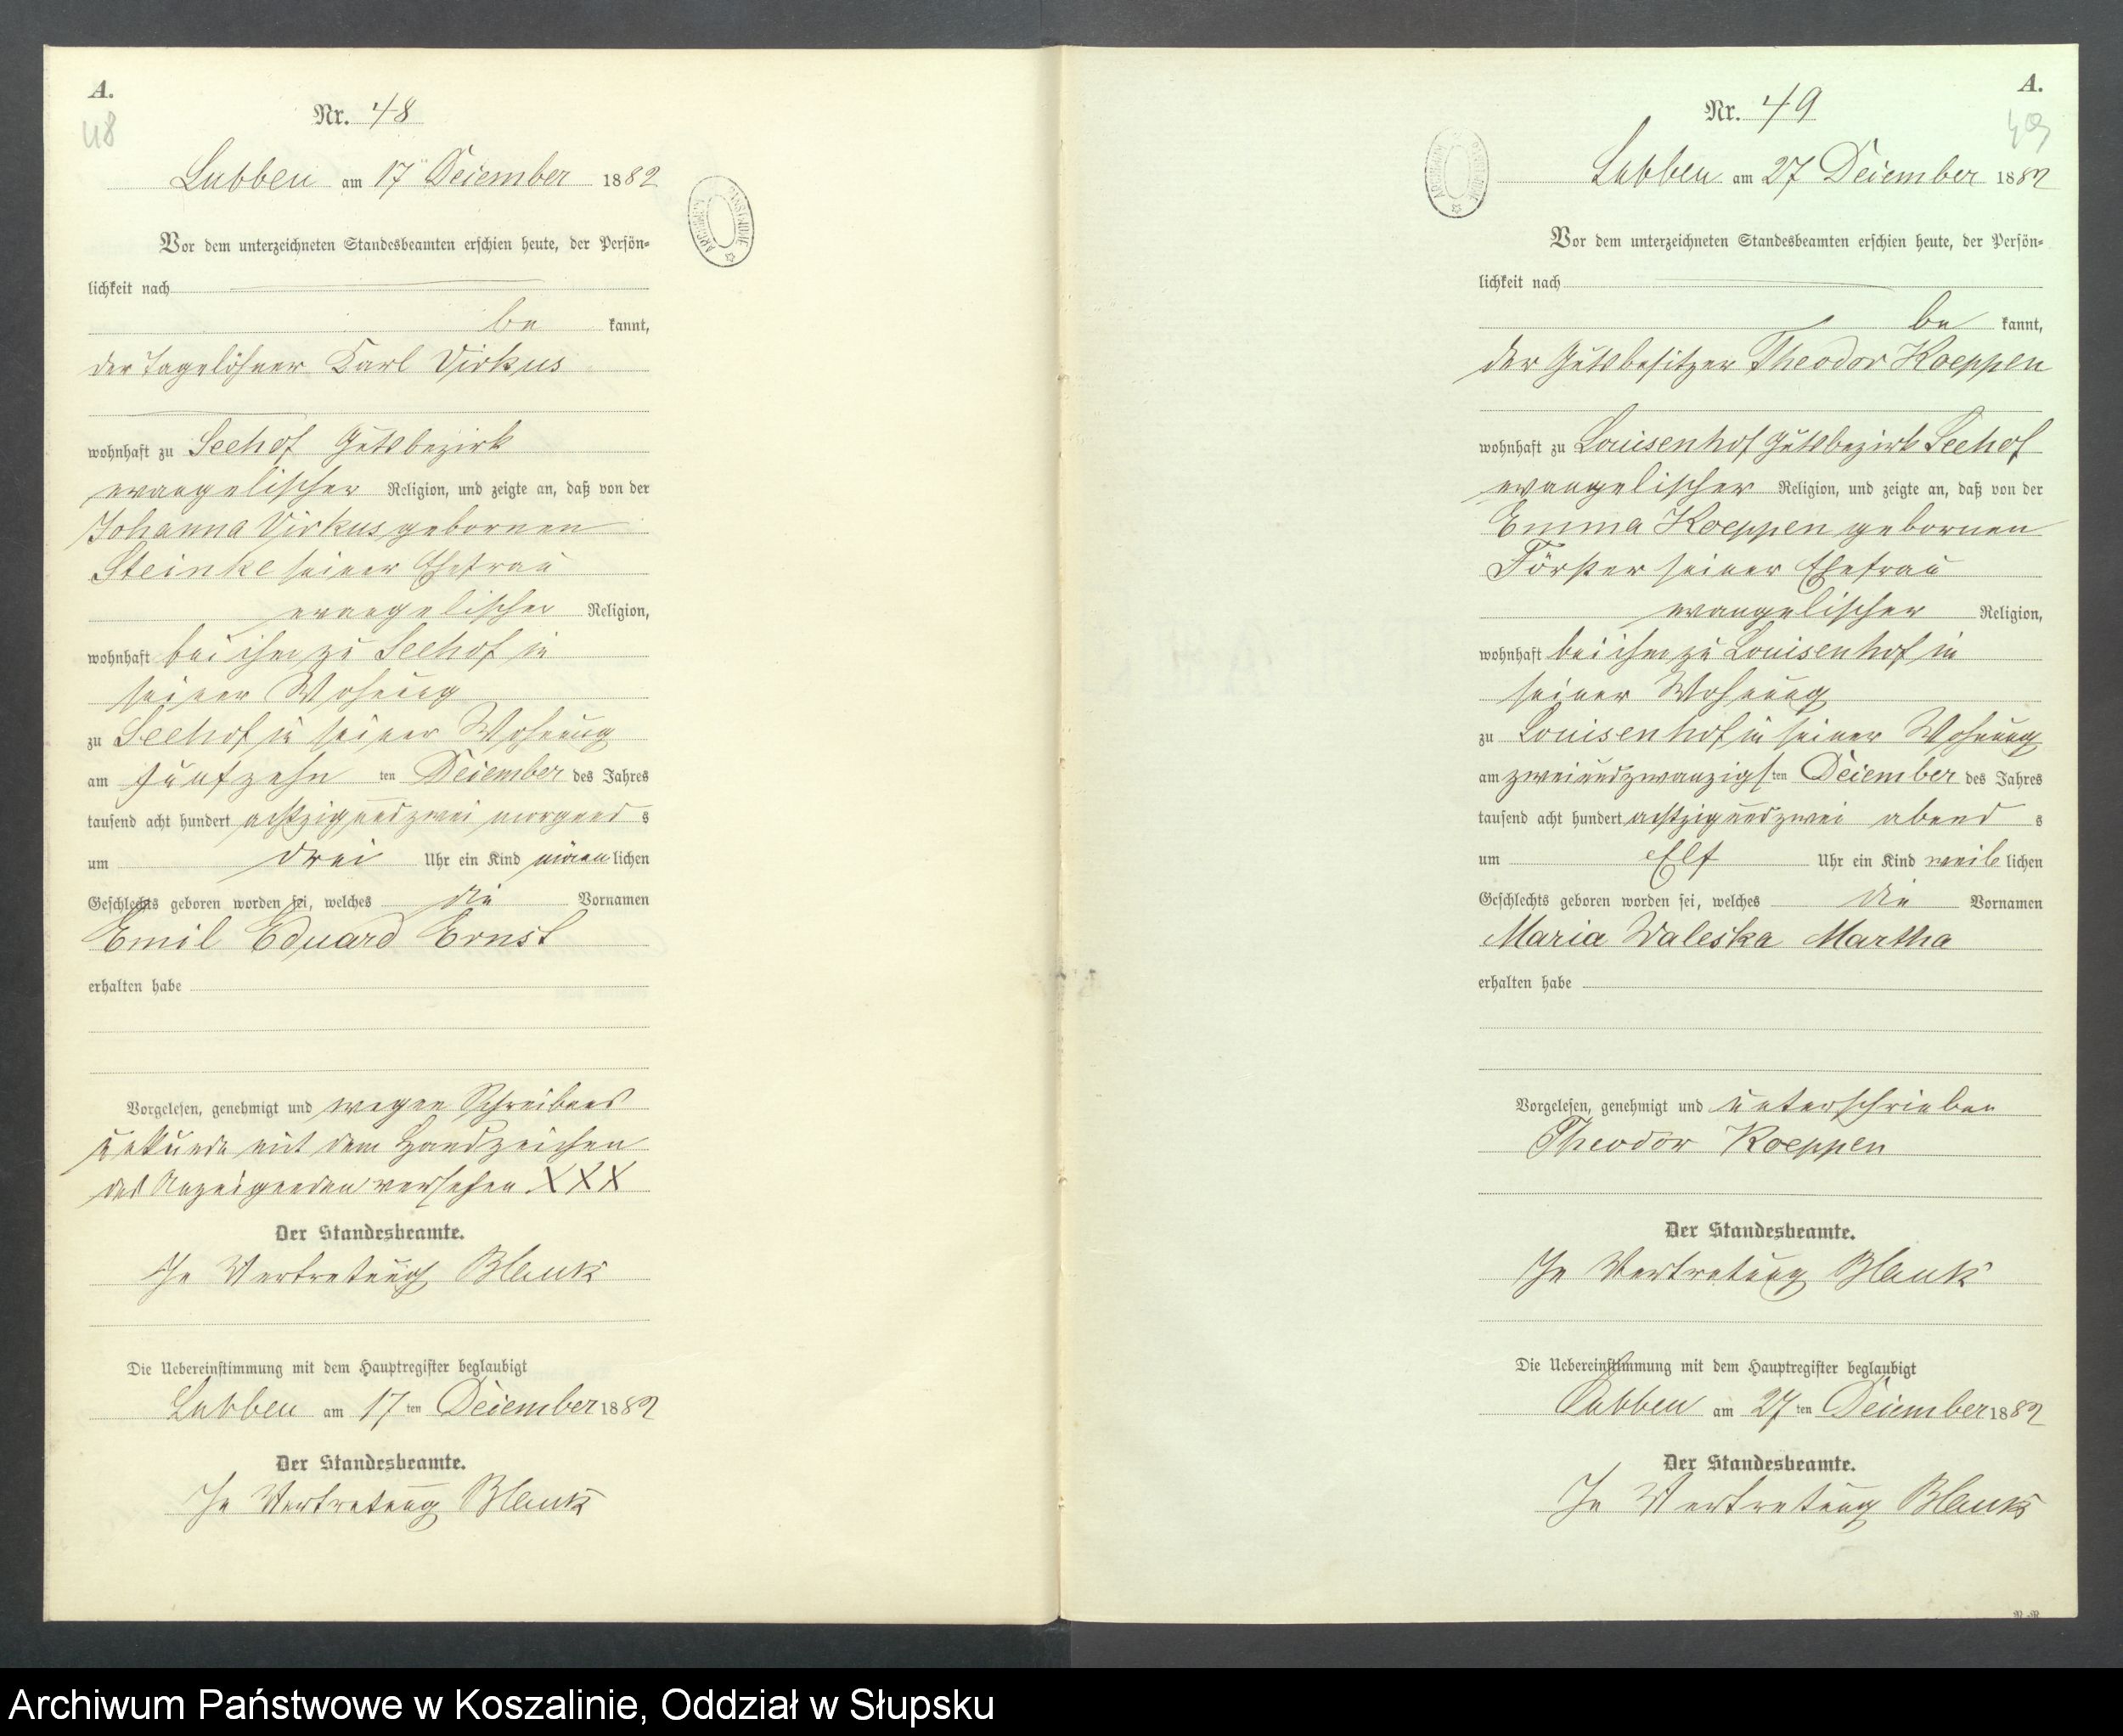 A.
48
Nr. 48
Lubben am 17 Deiember 1882
Vor dem unterzeichneten Standesbeamten erschien heute, der Persön-
lichkeit nach
be kannt,
der Tagelöhner Karl Virkus
wohnhaft zu Seehof Gutsbezirk
evangelischer Religion, und zeigte an, daß von der
Johanna Virkus gebornen
Steinke seiner Ehefrau
evangelischer Religion,
wohnhaft bei ihm zu Seehof in
seiner Wohnung
zu Seehof in seiner Wohnung
am fünfzehn ten Deiember des Jahres
tausend acht hundert achtzig und zwei morgend s
um drei Uhr ein Kind männlichen
Geschlechts geboren worden sei, welches die Vornamen
Emil Eduard Ernst
erhalten habe
Vorgelesen, genehmigt und wegen Schreibens
unkunde mit dem Handzeichen
des Anzeigenden versehen XXX
Der Standesbeamte.
In Vertretung Blank
Die Uebereinstimmung mit dem Hauptregister beglaubigt
Lubben am 17 ten Deiember 1882
Der Standesbeamte.
In Vertretung Blank
A.
49
Nr. 49
Lubben am 27 Deiember 1882
Vor dem unterzeichneten Standesbeamten erschien heute, der Persön-
lichkeit nach
be kannt,
der Gutsbesitzer Theodor Koeppen
wohnhaft zu Louisenhof Gutsbezirk Seehof
evangelischer Religion, und zeigte an, daß von der
Emma Koeppen gebornen
Förster seiner Ehefrau
evangelischer Religion,
wohnhaft bei ihm zu Louisenhof in
seiner Wohnung
zu Louisenhof in seiner Wohnung
am zweiundzwanzigs ten Deiember des Jahres
tausend acht hundert achtzig und zwei abend s
um Elf Uhr ein Kind weiblichen
Geschlechts geboren worden sei, welches die Vornamen
Maria Waleska Martha
erhalten habe
Vorgelesen, genehmigt und unterschrieben
Theodor Koeppen
Der Standesbeamte.
In Vertretung Blank
Die Uebereinstimmung mit dem Hauptregister beglaubigt
Lubben am 27 ten Deiember 1882
Der Standesbeamte.
In Vertretung Blank
Archiwum Państwowe w Koszalinie, Oddział w Słupsku